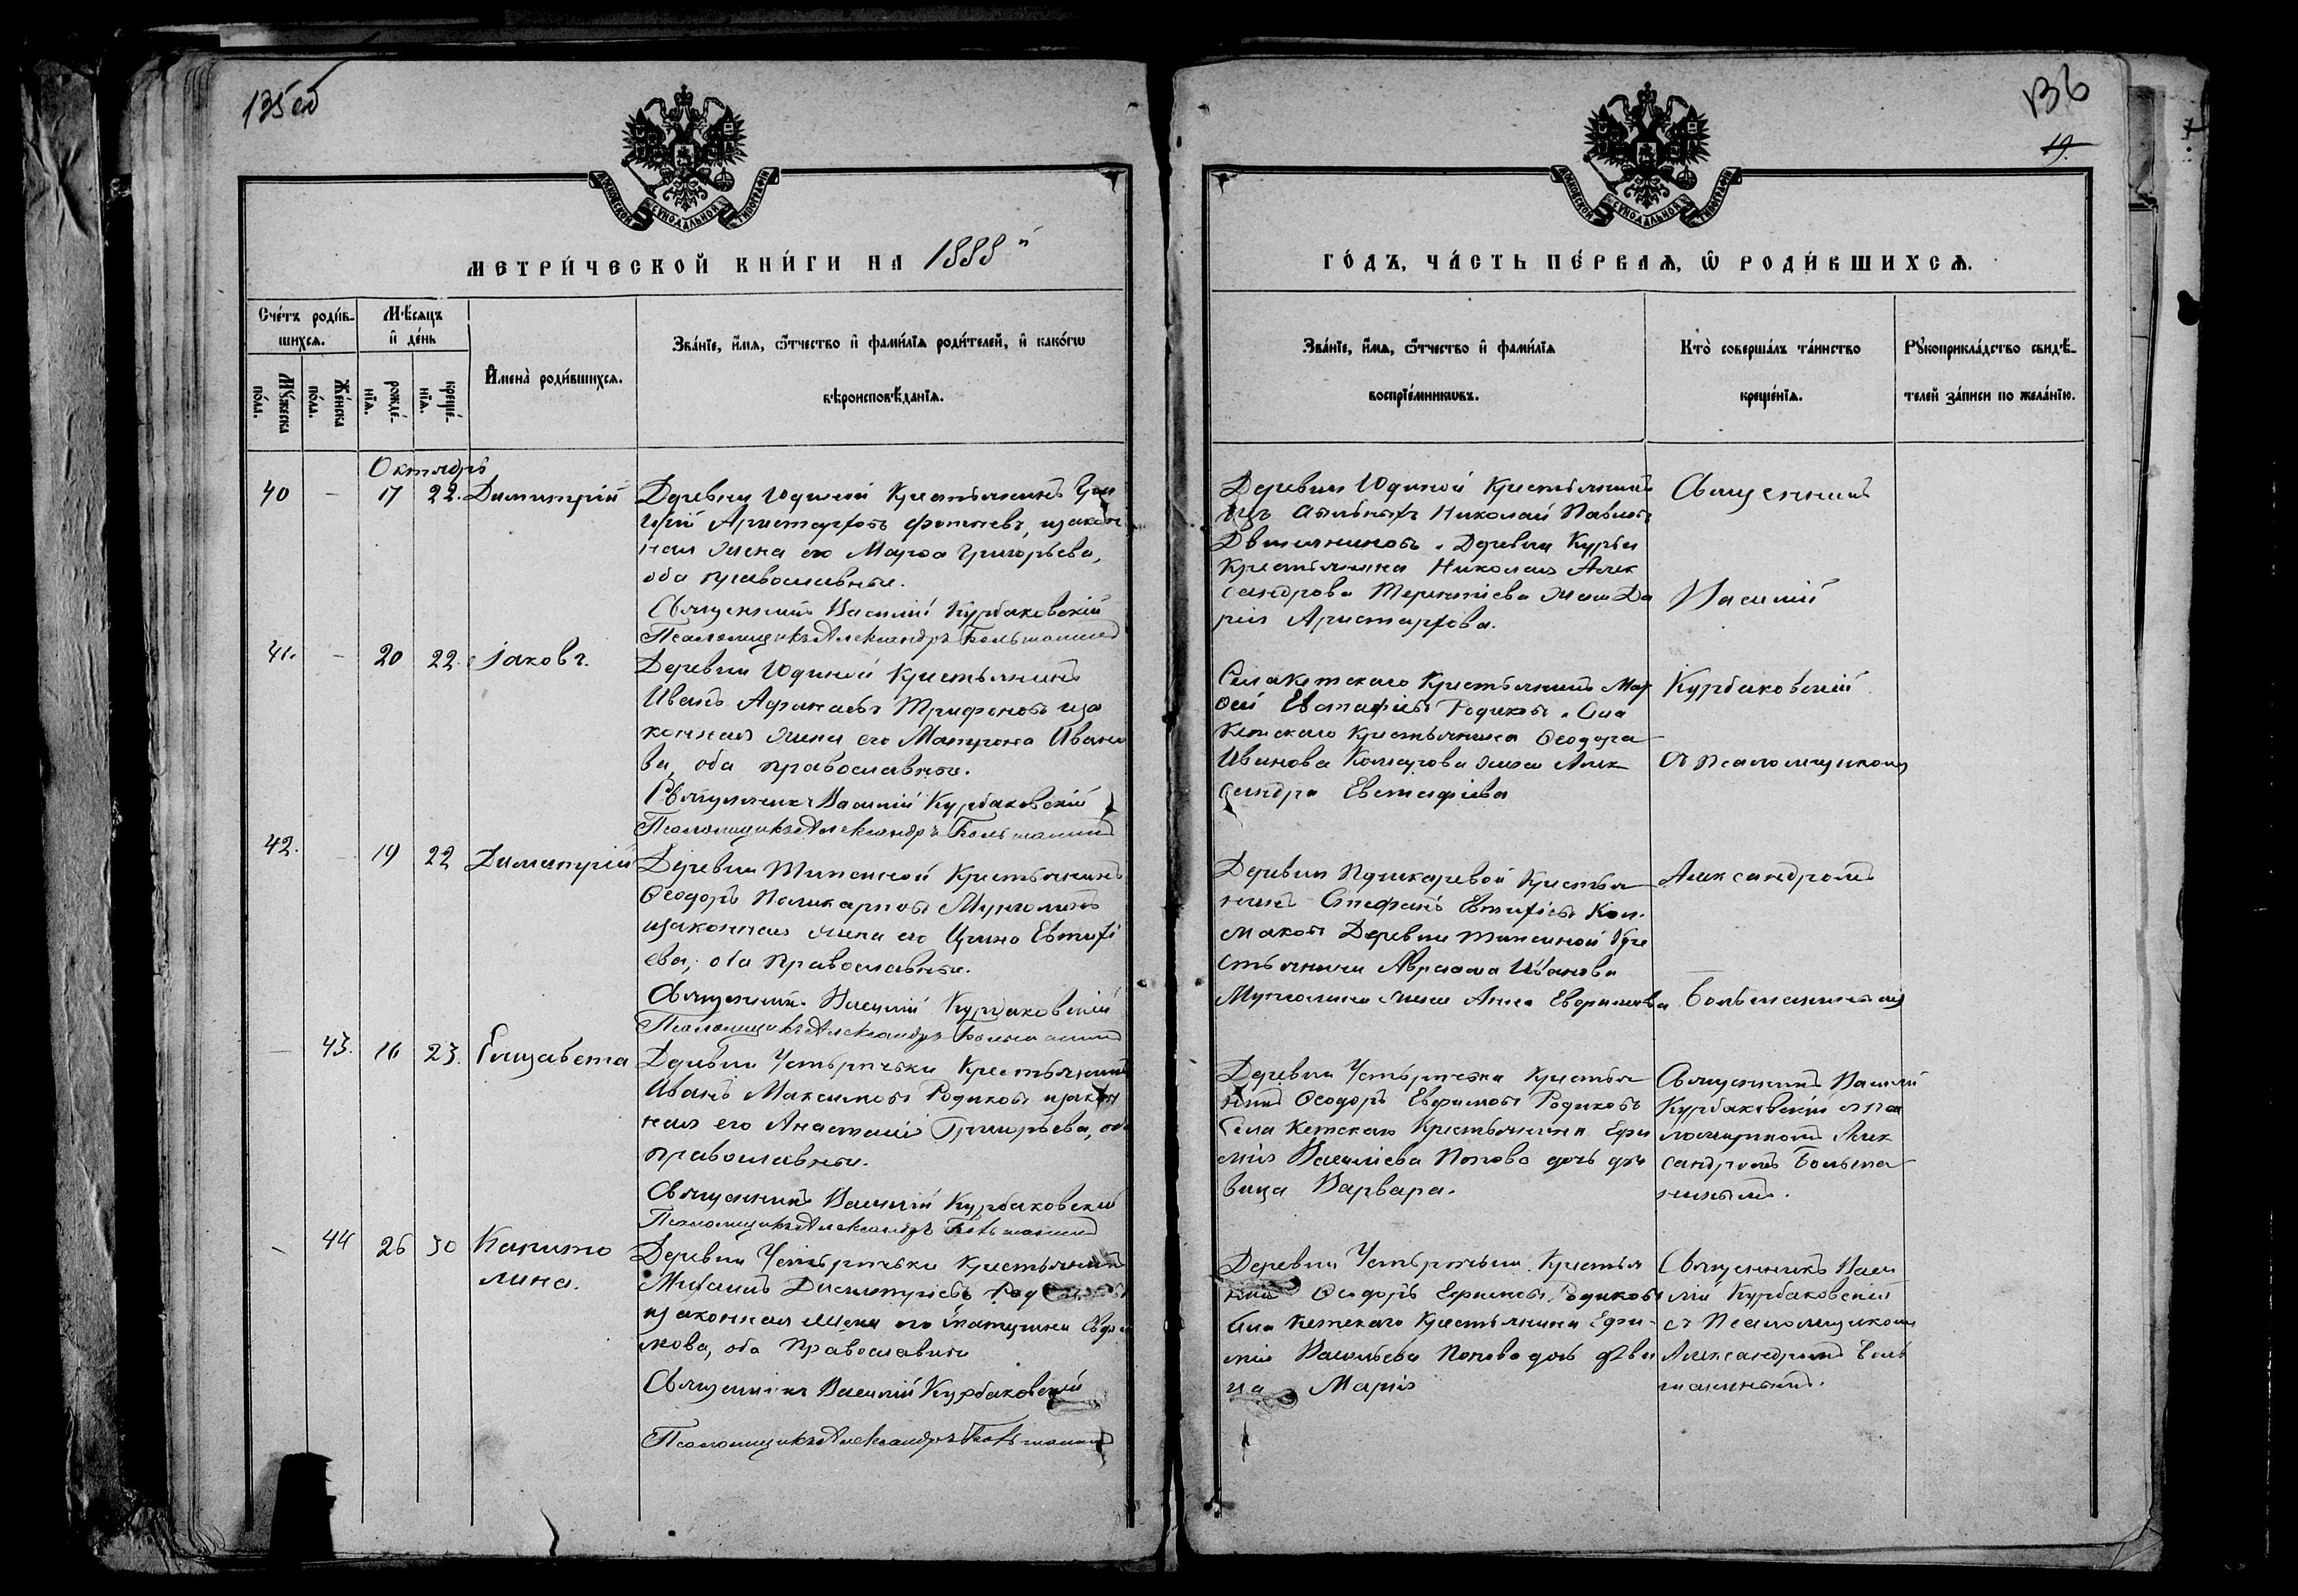 135об
МОСКОВСКОЙ СѴНОДАЛЬНОЙ ТИПОГРАФІИ
МЕТРИ́ЧЕСКОЙ КНИ́ГИ НА 1888й
Сче́тъ роди́в-
шихся.
Мѣсяцъ
и҆ де́нь
Му́жеска
по́ла.
Же́нска
по́ла.
рожде́-
нїя.
креще́-
нїя.
И҆мена̀ роди́вшихся.
Зва́нїе, и҆́мя, ѻ҆́тчество и҆ фами́лїя роди́телей, и҆ како́гѡ
вѣроисповѣ́данїя.
Октябрь
40 - 17 22. Димитрій
Деревни Юдиной Крестьянинъ Гри
горій Аристарховъ Фотиевъ, изакон
ная жена его Марѳа Григорьева,
оба православные.
Священникъ Василій Курбаковскій
Псаломщикъ Александръ Большанинъ
41. - 20 22. Іаковъ.
Деревни Юдиной Крестьянинъ
Иванъ Афанасьевъ Трифоновъ иза
конная жена его Матрона Ивано
ва, оба православные.
Священникъ Василій Курбаковскій
Псаломщикъ Александръ Большанинъ
42. - 19 22 Димитрій
Деревни Типсиной Крестьянинъ
Ѳеодоръ Поликарповъ Мунгаловъ
изаконная жена его Ирина Евтихі
ева, оба Православные.
Священникъ Василій Курбаковскій
Псаломщикъ Александръ Большанинъ
- 43. 16 23. Елизавета
Деревни Устьрѣчьки Крестьянинъ
Иванъ Максимовъ Родиковъ изакон
ная его Анастасія Григорьева, оба
православные.
Священникъ Василій Курбаковскій
Псаломщикъ Александръ Большанинъ
- 44 26 30 Капито
лина.
Деревни Устьрѣчьки Крестьянинъ
Михаилъ Димитріевъ Род
изаконная жена его Екатерина Евдо
кимова, оба Православные
Священникъ Василій Курбаковскій
Псаломщикъ Александръ Большанинъ
136
19.
МОСКОВСКОЙ СѴНОДАЛЬНОЙ ТИПОГРАФІИ
ГО́ДЪ, ЧА́СТЬ ПЕ́РВАЯ, Ѡ҆ РОДИ́ВШИХСЯ.
Зва́нїе, и҆́мя, ѻ҆́тчество и҆ фами́лїя
воспрїе́мникѡвъ.
Кто̀ соверша́лъ та́инство
креще́нїя.
Рꙋкоприкла́дство свидѣ́-
телей за́писи по жела́нїю.
Деревни Юдиной Крестьянинъ
изъ ссыльныхъ Николай Павловъ
Двиняниновъ. Деревни Курьи
Крестьянина Николая Алек
сандрова Терентіева жена Да
рія Аристархова.
Священникъ
Василій
Села Кетскаго Крестьянинъ Мар
Евстафіевъ Родиковъ. Села
Кетскаго Крестьянина Ѳеодора
Иванова Комарова жена Алек
сандра Евстафіева
Курбаковскій
съ псаломщикомъ
Деревни Пушкаревой Крестья
нинъ Стефанъ Евтихіевъ Кол
маковъ Деревни Типсиной Кре
стьянина Авраама Иванова
Мунгалова жена Анна Евфимова
Александромъ
Большанинымъ
Деревни Устьрѣчьки Крестья
нинъ Ѳеодоръ Евфимовъ Родиковъ
Села Кетскаго Крестьянина Ефи
мія Василіева Попова дочь дѣ
вица Варвара.
Священникъ Василій
Курбаковскій с пса
ломщикомъ Алек
сандромъ Большa
нинымъ.
Деревни Устьрѣчьки Крестья
нинъ Ѳеодоръ Ефимовъ Родиковъ
Села Кетскаго Крестьянина Ефи-
мія Васильева Попова дочь дѣви
ца Марія
Священникъ Васи
лій Курбаковскій
съ Псаломщикомъ
Александромъ Боль
шанинымъ.